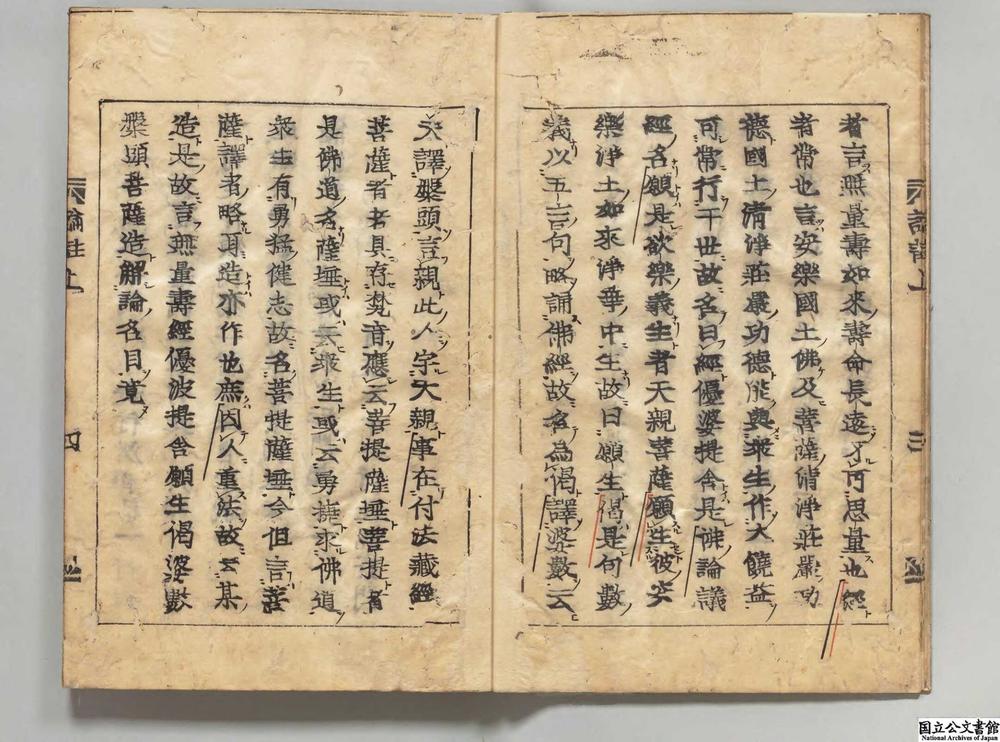 者言無量壽如來壽命長遠不可思量也經
者常也言安樂國土佛及菩薩清淨莊嚴功
德國土清淨莊嚴功德能與衆生作大饒益
可常行于世故名曰經優婆提舍是佛論議
經名願是欲樂義生者天親菩薩願生彼安
樂淨土如來淨華中生故曰願生偈是句數
義以五言句略誦佛經故名為偈譯婆數云
論註上
三
天譯槃頭言親此人字天親事在付法藏經
菩薩者若具存梵音應云菩提薩埵菩提者
是佛道名薩埵或云衆生或云勇揵求佛道
衆生有勇猛健志故名菩提薩埵今但言菩
薩譯者略耳造亦作也庶因人重法故云某
造是故言無量壽經優波提舍願生偈婆數
槃頭菩薩造解論名目竟
論註上
四
国立公文書館
National Archives of Japan